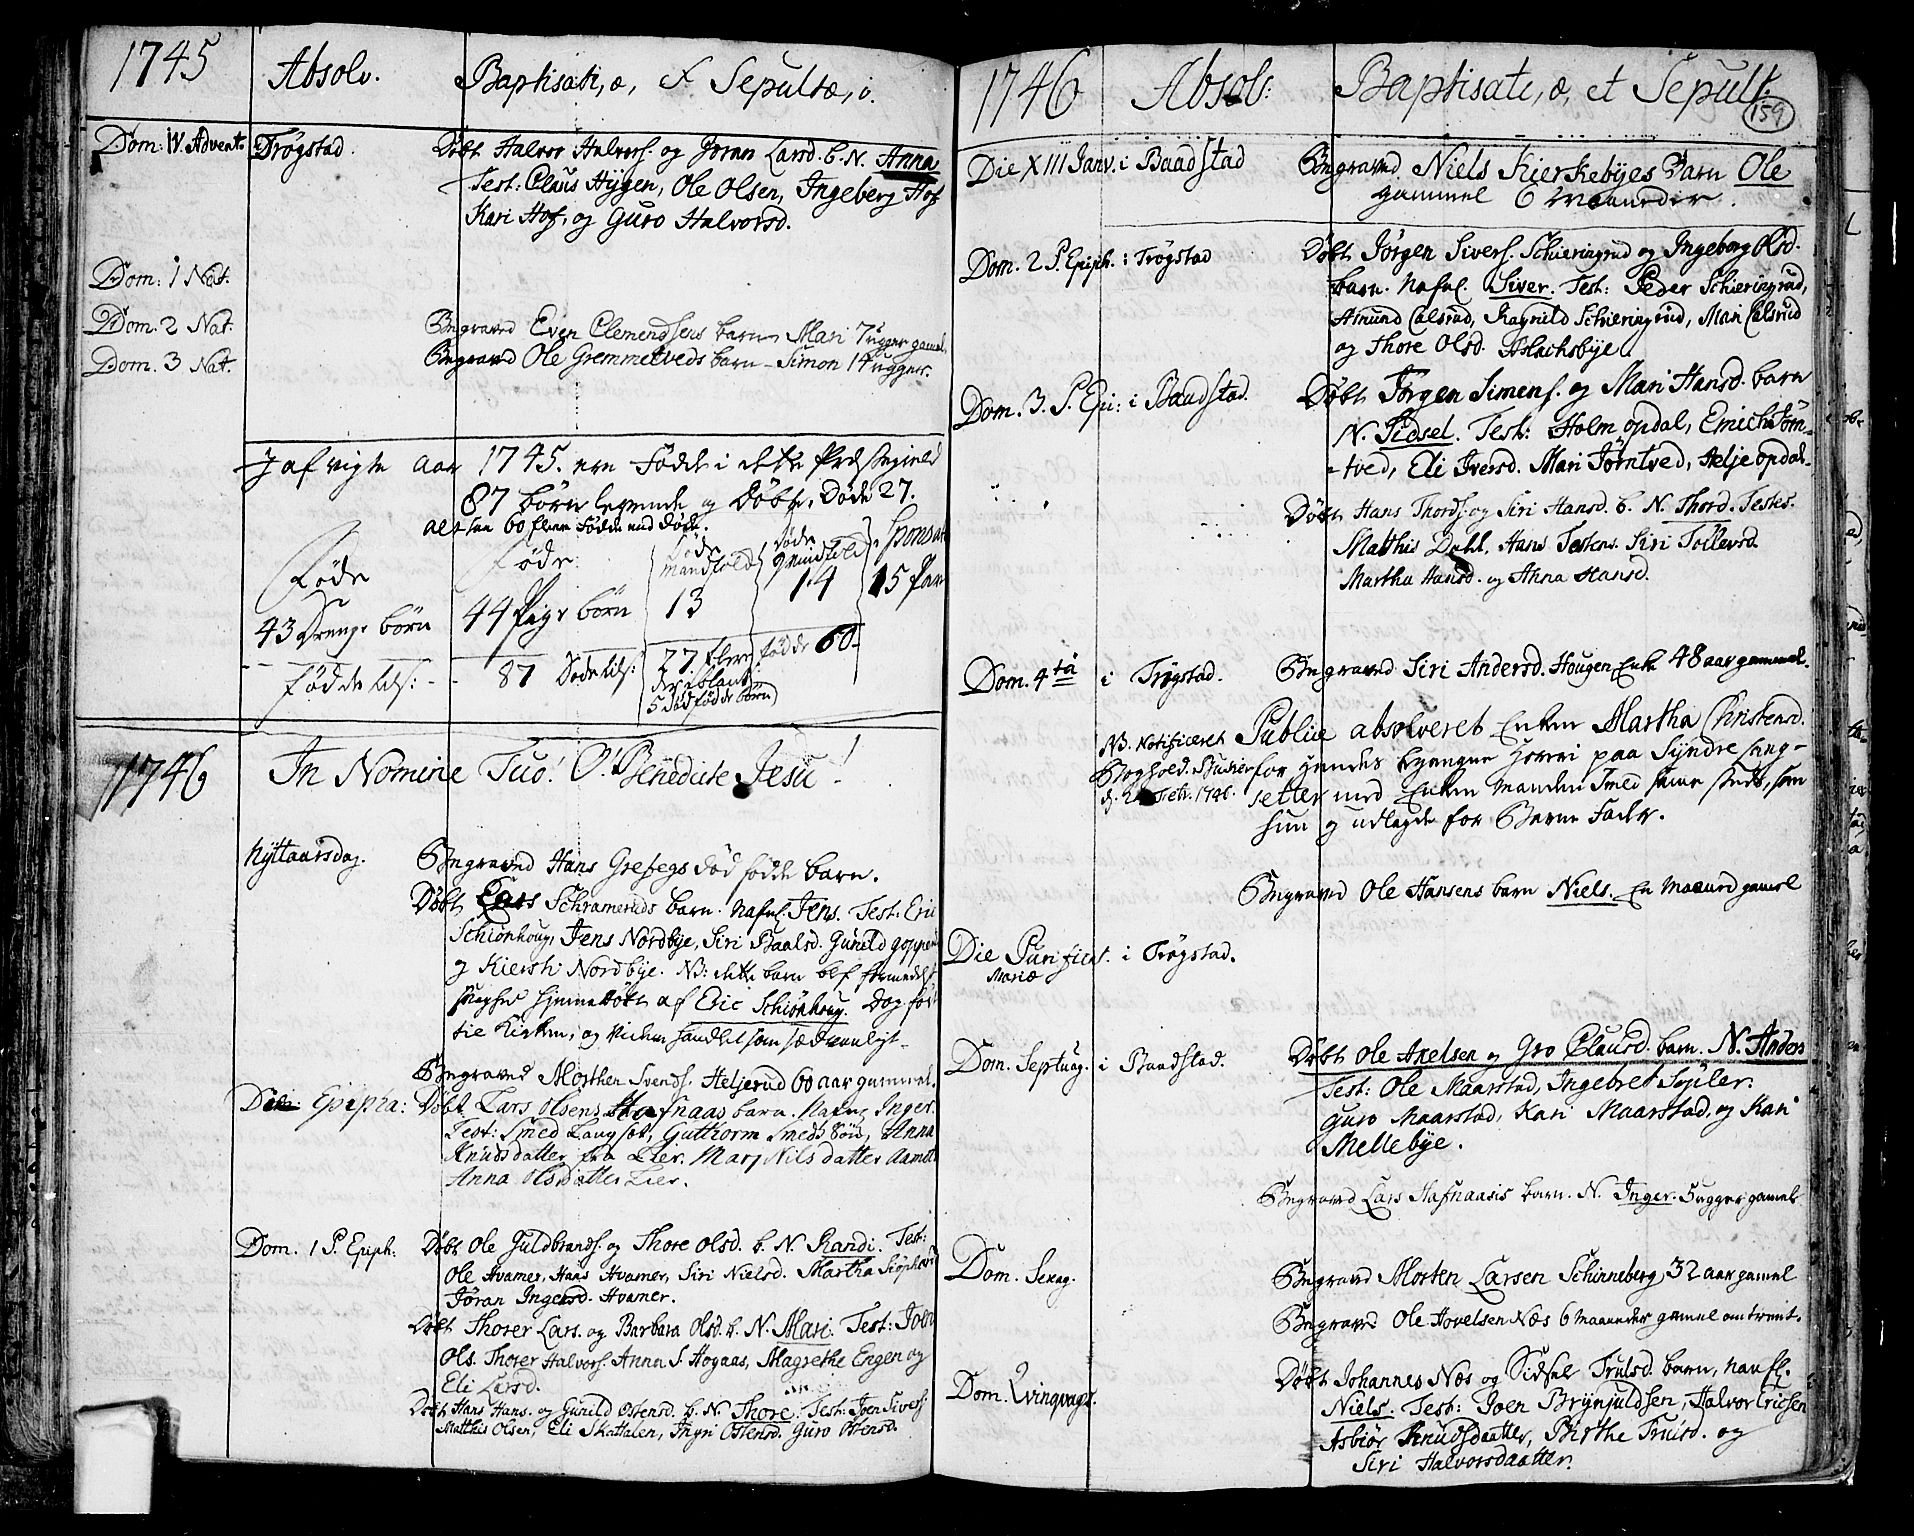 1745 Absolv. Baptisati, æ, & Sepultæ, i.
Dom: IV Advent. Trøgstad. Døbt Halvor Halvors. og Joran Larsd. b. N. Anna
Test: Claus Hÿgen, Ole Olsen, Ingeberg Hof
Kari Hof, og Guro Halvorsd.
Dom: 1 Nat.
Dom. 2 Nat: Begraved Even Clemendsens barn Mari 7 ugger gamel
Dom. 3 Nat. Begraved Ole Gremmetveds barn Simon 14 ugger.
J afvigte Aar 1745. ere Fødde i dette Præstegield
87 børn levende og døbte. Døde 27.
altsaa 60 flere Fødde end døde.
Føde
43 Drenge børn
Føde
44 Pige børn
Føde
Mandkold
13
Døde
Qvindkold
14
Sponsat
15 Par
Fødde tils: 87 Døde tils: 27. flere fødde 60.
der iblant
5 død fødde børn
1746 In Nomine Tuo! O! Benedicte Jesu!
Nyttaarsdag. Begraved Hans Grefsegs død fødde barn.
Døbt Lars Schrameruds barn. Nafnl. Jens. Test: Eric
Schiønhoug, Jens Nordbye, Siri Paalsd. Gunild goppen
og Kiersti Nordbÿe. NB: dette barn blef formedelst
svaghed hjemmedøbt af Eric Schiønhoug. Dog ført
til Kirken, og viidere handlet som sædvanligt.
Begraved Morthen Svends. Heljerud 60 aar gammel.
Epipha: Døbt Lars Olsens Hafnaas barn. Nafnl Inger.
Test: Smed Langset, Gutthorm Smeds Søn, Anna
Knuds datter fra Lier. Mari Nils datter Aamot
Anna Olsdatter Lier.
Dom. 1 P. Epiph: Døbt Ole Guldbrands. og Thore Olsd. b. N. Randi. Test:
Ole Hvamer, Hans Hvamer, Siri Nielsd. Martha
Jøran Ingersd. Hvamer.
Døbt Thorer Lars. og Barbara Olsd. b. N. Mari. Test: Joen
Ols. Thorer Halvors. Anna S. Hogaas, Magrethe Engen og
Eli Larsd.
Døbt Hans Hans. og Gunild Ostensd. b. N. Thore. Test: Joen Sivers.
Matthis Olsen, Eli Skattalen, Ingri Ostensd. Guro Ostensd.
1746 Absol: Baptisati, æ, et Sepult.
159
Die XIII Janv. i Baadstad Begraved Niels Kierkebÿes Barn Ole
gammel 6 Maaneder.
Dom. 2 P. Epiph. i Trøgstad Døbt Jørgen Sivers. Schieringrud og Ingeborg Olsd.
barn. Nafnl. Siver. Test: Peder Schieringrud,
Amund Calsrud, Ragnild Schieringrud, Mari Calsrud
og Thore Olsd. Aslachsbÿe.
Dom. 3. P. Epi: i Baadstad. Døbt Jørgen Simens. og Mari Hansd. barn
N. Sidsel. Test: Holm opdal, Emich Jørn-
tved, Eli Iversd. Mari Jørntved, Helje opdal.
Døbt Hans Thords. og Siri Hansd. b. N. Thord. Testes.
Matthis Dahl, Hans Siri Tollevsd.
Martha Hansd. og Anna Hansd.
Dom. 4ta i Trøgstad. Begraved Siri Andersd. Hougen Enke 48 aar gammel.
NB. Notificeret
d. Febr. 1746.
Publice absolveret Enken Martha Christensd.
for hendes begangne Horeri paa Syndre Lang-
setter med Enken Manden Smed samme steds, som
hun og udlagde for Barne Fader.
Begraved Ole Hansens barn Niels. En Maaned gamel
Die Purificat. i Trøgstad.
Mariæ
Dom. Septuag. i Baadstad. Døbt Ole Axelsen og Gro Clausd. barn. N. Anders
Test: Ole Maarstad, Ingebret Sojler.
Guro Maarstad, Kari Maarstad, og Kari
Mellebÿe.
Begraved Lars Hafnaasis barn. N. Inger. 5 ugger gamel
Dom. Sexag. Begraved Morten Larsen Schinneberg 32 aar gamel
Begraved Ole Hovelsen Næs 6 Maaneder gamel omtrent.
Dom. Qvinqvags. Døbt Johannes Næs og Sidsel Trulsd. barn, Nafnl.
Niels. Test: Joen Brynjuldsen, Halvor Ericsen
Asbiør Knudsdaatter, Birthe Trulsd. og
Siri Halvorsdaatter.